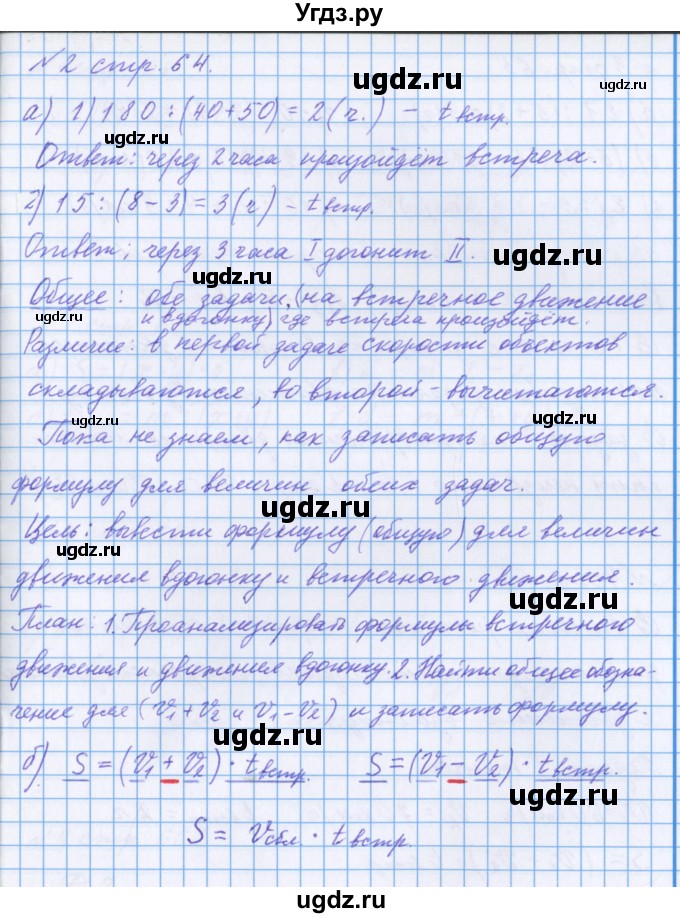 Угдз.ру
№2 стр. 64.
ugdz.ru
ugdz.ru
а) 1) 180 : (40+50) = 2 (ч.) – t встр.
ugdz.ru
Ответ: через 2 часа произойдёт встреча.
2) 15 : (8 – 3) = 3 (ч) – t встр.
ugdz.ru
Ответ: через 3 часа I догонит II.
ugdz.ru
ugdz.ru
Общее: обе задачи, (на встречное движение
ugdz.ru
и вдогонку) где встреча произойдёт.
Различие: в первой задаче скорости объектов
ugdz.ru
складываются, во второй – вычитаются.
ugdz.ru
ugdz.ru
Пока не знаем, как записать общую
формулу для величин обеих задач.
ugdz.ru
Цель: вывести формулу (общую) для величины
ugdz.ru
движения вдогонку и встречного движения.
ugdz.ru
План: 1. Проанализировать формулы встречного
движения и движения вдогонку. 2. Найти общее обозна-
ugdz.ru
чение для (v₁ + v₂ и v₁ – v₂) и записать формулу.
ugdz.ru
б) S = (v₁ + v₂) · t встр. S = (v₁ – v₂) · t встр.
ugdz.ru
ugdz.ru
S = vсбл. · t встр.
ugdz.ru
ugdz.ru